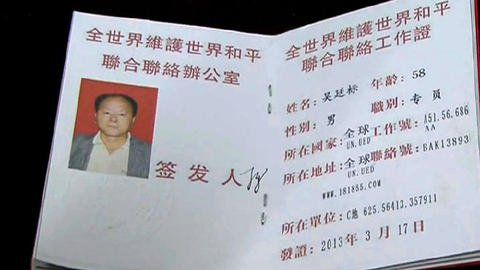 全世界維護世界和平
聯合聯絡辦公室
签发人
全世界維護世界和平
聯合聯絡工作證
姓名: 吴廷标 年齡: 58
性别: 男 職别: 专员
所在國家: 全球 UN.UED 工作號: A51.56.686 AA
所在地址: 全球 UN.UED 聯絡號: BAK13893
WWW.181855.COM
所在單位: C地 625.56413.357911
發證: 2013年 3月 17日